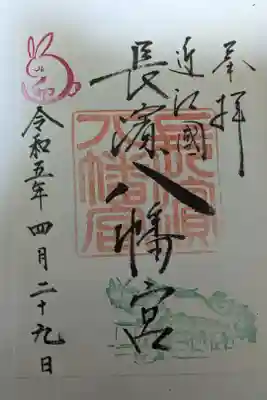 奉拝
近江國
長濱八幡宮
令和五年四月二十九日